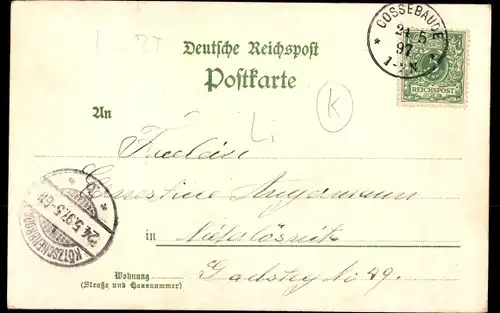 COSSEBAUDE
24 5
97
1-2N
Deutsche Reichspost
Postkarte
5
REICHSPOST
K
Li
An
Fräulein
Ernestine Angermann
in Niederlössnitz
No 49.
Wohnung
(Straße und Hausnummer)
KÖTZSCHENBRODA
24.5.97.5-6N